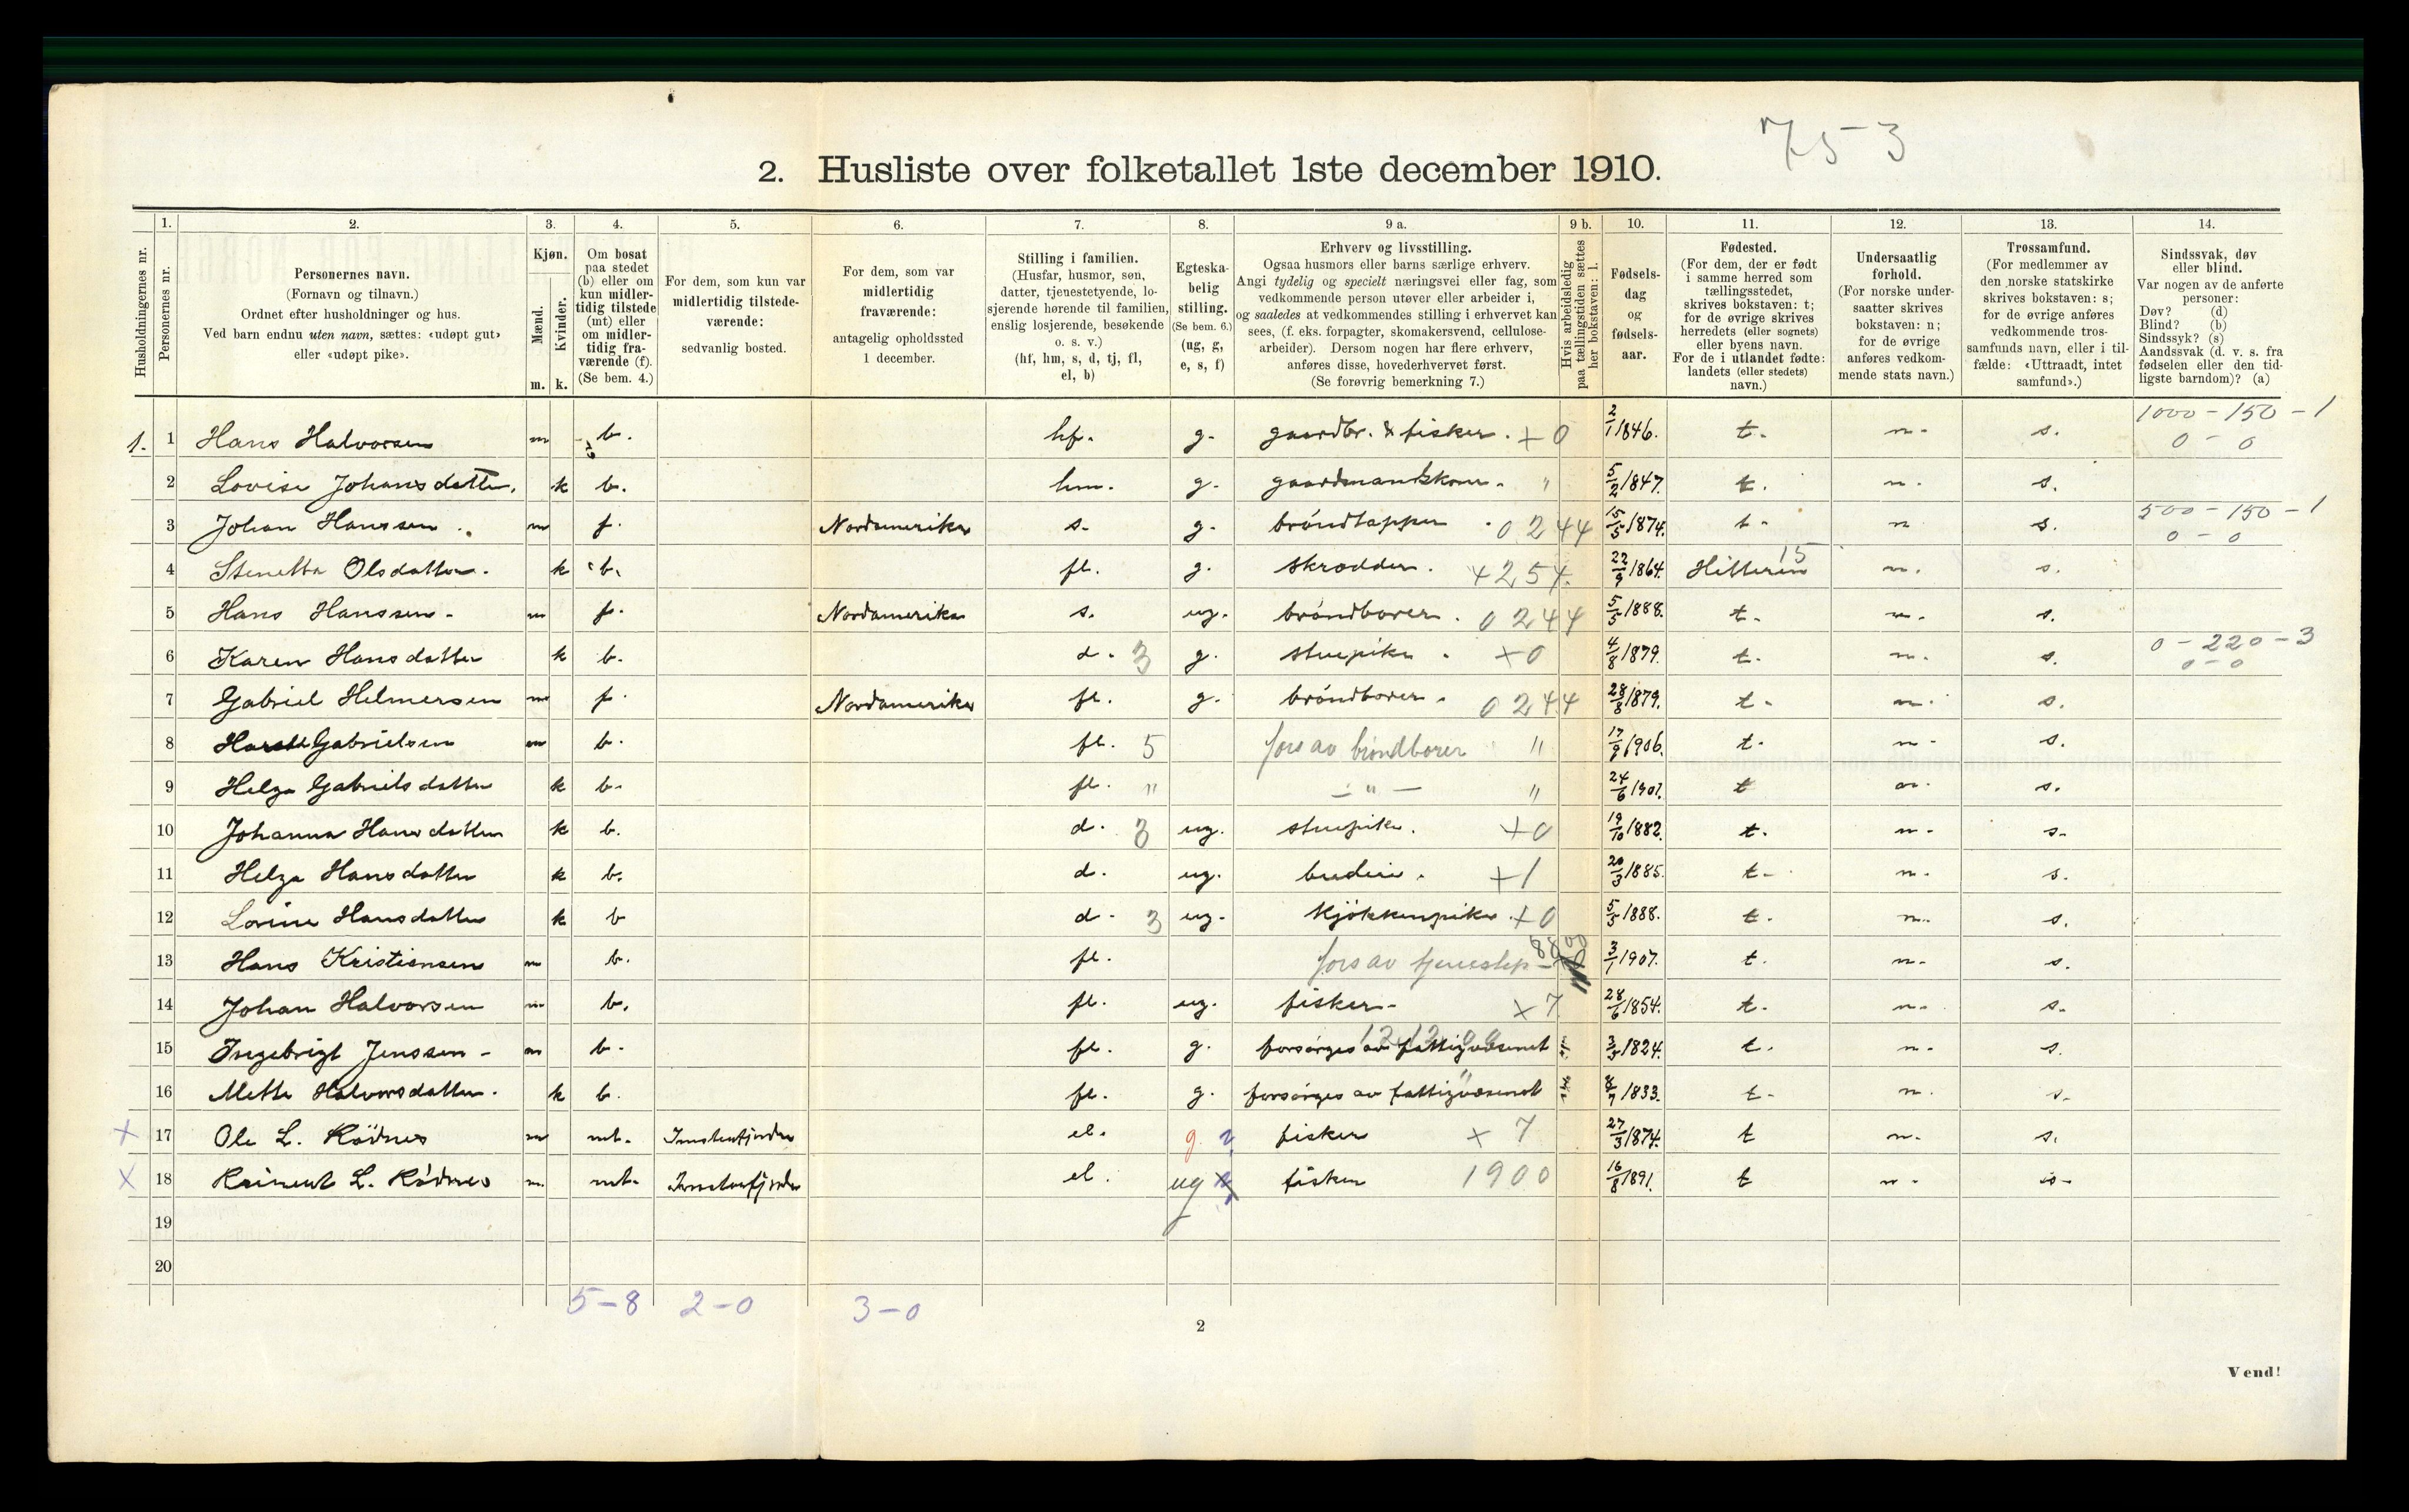 75-3
2. Husliste over folketallet 1ste december 1910.
1. 2. 3. 4. 5. 6. 7. 8. 9 a. 9 b. 10. 11. 12. 13. 14.
Husholdningernes nr.
Personernes nr.
Personernes navn.
(Fornavn og tilnavn.)
Ordnet efter husholdninger og hus.
Ved barn endnu uten navn, sættes: «udøpt gut»
eller «udøpt pike».
Kjøn.
Mænd.
Kvinder.
m. k.
Om bosat
paa stedet
(b) eller om
kun midler-
tidig tilstede
(mt) eller
om midler-
tidig fra-
værende (f).
(Se bem. 4.)
For dem, som kun var
midlertidig tilstede-
værende:
sedvanlig bosted.
For dem, som var
midlertidig
fraværende:
antagelig opholdssted
1 december.
Stilling i familien.
(Husfar, husmor, søn,
datter, tjenestetyende, lo-
sjerende hørende til familien,
enslig losjerende, besøkende
o. s. v.)
(hf, hm, s, d, tj, fl,
el, b)
Egteska-
belig
stilling.
(Se bem. 6.)
(ug, g,
e, s, f)
Erhverv og livsstilling.
Ogsaa husmors eller barns særlige erhverv.
Angi tydelig og specielt næringsvei eller fag, som
vedkommende person utøver eller arbeider i,
og saaledes at vedkommendes stilling i erhvervet kan
sees, (f. eks. forpagter, skomakersvend, cellulose-
arbeider). Dersom nogen har flere erhverv,
anføres disse, hovederhvervet først.
(Se forøvrig bemerkning 7.)
Hvis arbeidsledig
paa tællingstiden sættes
her bokstaven: l.
Fødsels-
dag
og
fødsels-
aar.
Fødested.
(For dem, der er født
i samme herred som
tællingsstedet,
skrives bokstaven: t;
for de øvrige skrives
herredets (eller sognets)
eller byens navn.
For de i utlandet fødte:
landets (eller stedets)
navn.)
Undersaatlig
forhold.
(For norske under-
saatter skrives
bokstaven: n;
for de øvrige
anføres vedkom-
mende stats navn.)
Trossamfund.
(For medlemmer av
den norske statskirke
skrives bokstaven: s;
for de øvrige anføres
vedkommende tros-
samfunds navn, eller i til-
fælde: «Uttraadt, intet
samfund».)
Sindssvak, døv
eller blind.
Var nogen av de anførte
personer:
Døv? (d)
Blind? (b)
Sindssyk? (s)
Aandssvak (d. v. s. fra
fødselen eller den tid-
ligste barndom)? (a)
1000-150-1
1. 1 Hans Halvorsen m b. hf. g. gaardbr. & fisker. +0 2/1 1846. t. n. s. 0-0
2 Lovise Johansdatter. k b. hm. g. gaardmandskone. " 5/2 1847. t. n. s.
500-150-1
3 Johan Hanssen. m f. Nordamerika s. g. bröndtapper 0244 15/5 1874. t. n s. 0-0
4 Stenetta Olsdatter. k b. fl. g. skrædder. +254. 22/9 1864. Hitteren 15 n. s.
5 Hans Hanssen. m f. Nordamerika s. ug. bröndborer. 0244 5/5 1888. t. n. s.
0-220-3
6 Karen Hansdatter k b. d. 3 g. stuepike. +0 4/8 1879. t. n. s. 0-0
7 Gabriel Helmersen m f. Nordamerika fl. g. bröndborer. 0244 28/8 1879. t. n. s.
8 Gabrielsen m b. fl. 5 fors av bröndborer " 17/9 1906. t. n. s.
9 Helga Gabrielsdatter k b. fl. " - " - " 24/6 1907. t n. s.
10 Johanna Hansdatter k b. d. 3 ug. stuepike. +0 19/10 1882. t. n. s.
11 Helga Hansdatter k b. d. ug. budeie. +1 20/3 1885. t. n. s.
12 Lovise Hansdatter k b d. 3 ug. kjökkenpike. +0 5/5 1888. t. n. s.
13 Hans Kristiansen m b. fl. fors av tjenestep 3/1 1907. t. n. s.
14 Johan Halvorsen m b. fl. ug. fisker. +7 28/6 1854. t. n. s.
15 Ingebrigt Jenssen m b. fl. g. forsörges av fattigvæsenet 3/5 1824. t. n. s.
16 Mette Halvorsdatter. k b. fl. g. forsörges av fattigvæsenet 8/7 1833. t. n. s.
x 17 Ole L. Rödnes m mt. el. g. fisker x 7 27/3 1874. t n. s.
x 18 L. Rödnes m. mt. el. ug fisker 1900 16/8 1891. t n. s.
19
20
5-8 2-0 3-0
2
Vend!